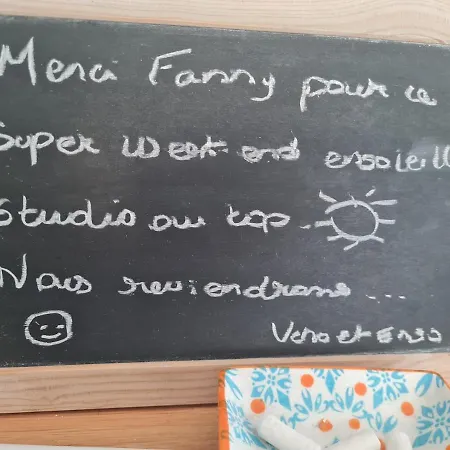 Merci Fanny pour ce
Super week end ensoleill
Studio au top.
Nous reviendrons ...
Vero et Enzo